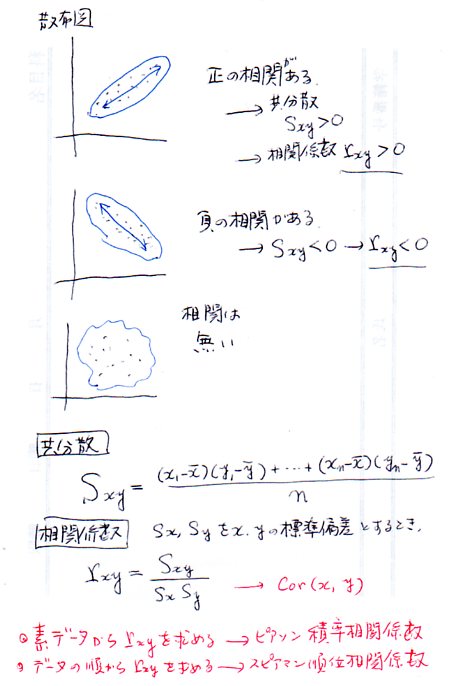 散布図
正の相関がある
→ 共分散
Sxy>0
→ 相関係数 rxy>0
負の相関がある
→ Sxy<0 → rxy<0
相関は
無い
共分散
Sxy = (x₁-x̄)(y₁-ȳ)+…+(xn-x̄)(yn-ȳ) / n
相関係数 Sx, Sy を x, y の標準偏差とするとき,
rxy = Sxy / SxSy → Cor(x, y)
素データから rxy を求める → ピアソン 積率相関係数
データの順から rxy を求める → スピアマン順位相関係数